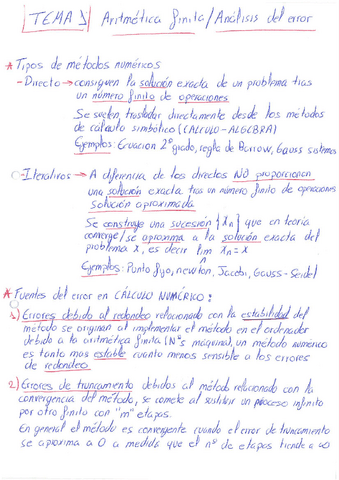 TEMA 1 Aritmética finita/Análisis del error
* Tipos de métodos numéricos
- Directo → consiguen la solución exacta de un problema tras
un número finito de operaciones
Se suelen trasladar directamente desde los métodos
de cálculo simbólico (CALCULO-ALGEBRA)
Ejemplos: Ecuacion 2º grado, regla de Barrow, Gauss sistemas
- Iterativos → A diferencia de los directos NO proporcionan
una solución exacta tras un número finito de operaciones
Solución aproximada
Se construye una sucesión {Xn} que en teoría
converge/se aproxima a la solución exacta del
problema x, es decir lim Xn = X
n
Ejemplos: Punto fijo, newton, Jacobi, Gauss-Seidel
* Fuentes del error en CÁLCULO NUMÉRICO:
1) Errores debido al redondeo relacionado con la estabilidad del
método se originan al implementar el método en el ordenador
debido a la aritmética finita (Nºs máquina), un método numérico
es tanto mas estable cuanto menos sensible a los errores
de redondeo.
2) Errores de truncamiento debidos al método relacionado con la
convergencia del método, se comete al sustituir un proceso infinito
por otro finito con "m" etapas.
En general el método es convergente cuando el error de truncamiento
se aproxima a 0 a medida que el nº de etapas tiende a ∞